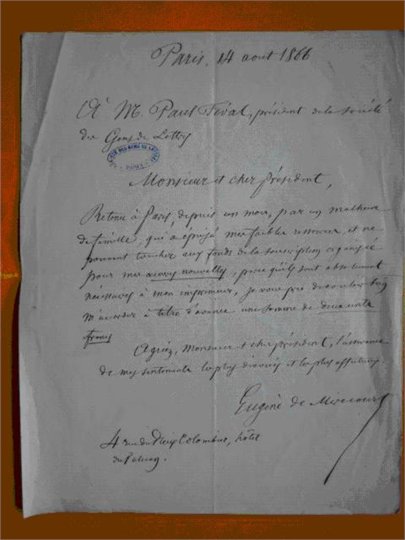 Paris, 14 aout 1866
A M. Paul Féval, président de la Société
des Gens de Lettres
Monsieur et cher président,
Retenu à Paris, depuis un mois, par un malheur
de famille, qui a épuisé mes faibles ressources, et ne
pouvant toucher aux fonds de la souscription organisée
pour mes œuvres nouvelles, parce qu'ils sont absolument
nécessaires à mon imprimeur, je vous prie de vouloir bien
m'accorder à titre d'avance une somme de deux cents
francs
Agréez, Monsieur et cher président, l'assurance
de mes sentiments les plus dévoués et les plus affectueux.
Eugène de Mirecourt
4 rue du Vieux Colombier, hôtel